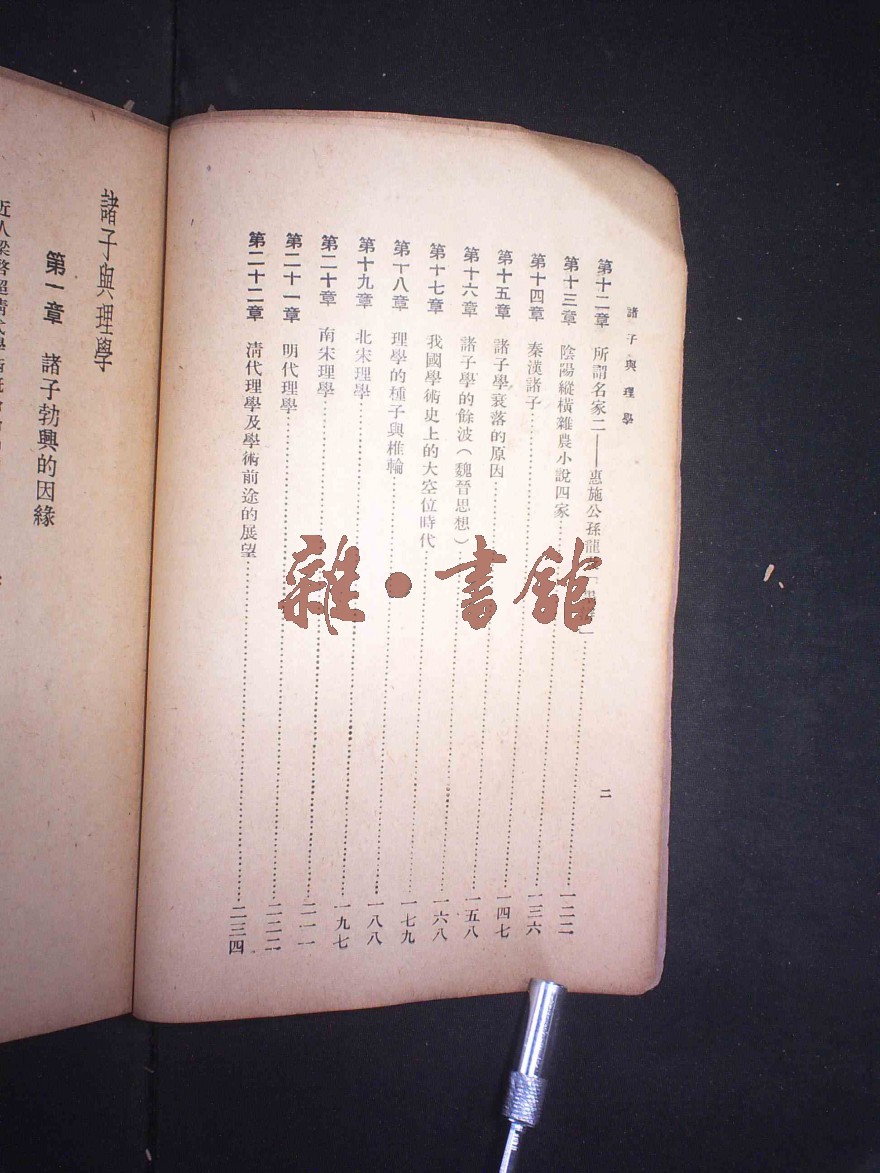 諸子與理學
二
第十二章 所謂名家二——惠施公孫龍 一二二
第十三章 陰陽縱橫雜農小說四家 一三六
第十四章 秦漢諸子 一四七
第十五章 諸子學衰落的原因 一五八
第十六章 諸子學的餘波（魏晉思想） 一六八
第十七章 我國學術史上的大空位時代 一七九
第十八章 理學的種子與椎輪 一八八
第十九章 北宋理學 一九七
第二十章 南宋理學 二一一
第二十一章 明代理學 二二二
第二十二章 清代理學及學術前途的展望 二三四
雜·書館
諸子與理學
第一章 諸子勃興的因緣
近人梁啓超清代學術概